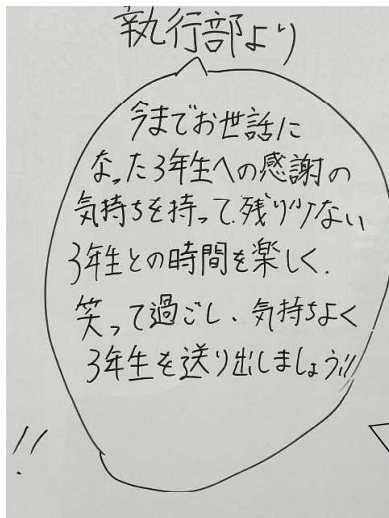 執行部より
今までお世話に
なった3年生への感謝の
気持ちを持って、残り少ない
3年生との時間を楽しく、
笑って過ごし、気持ちよく
3年生を送り出しましょう!!
!!